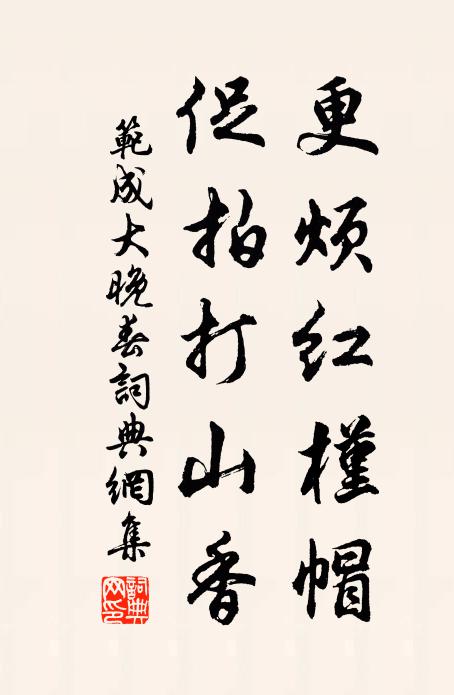 更烦红槿帽
促拍打山香
範成大晚春詞典網集
詞典網印